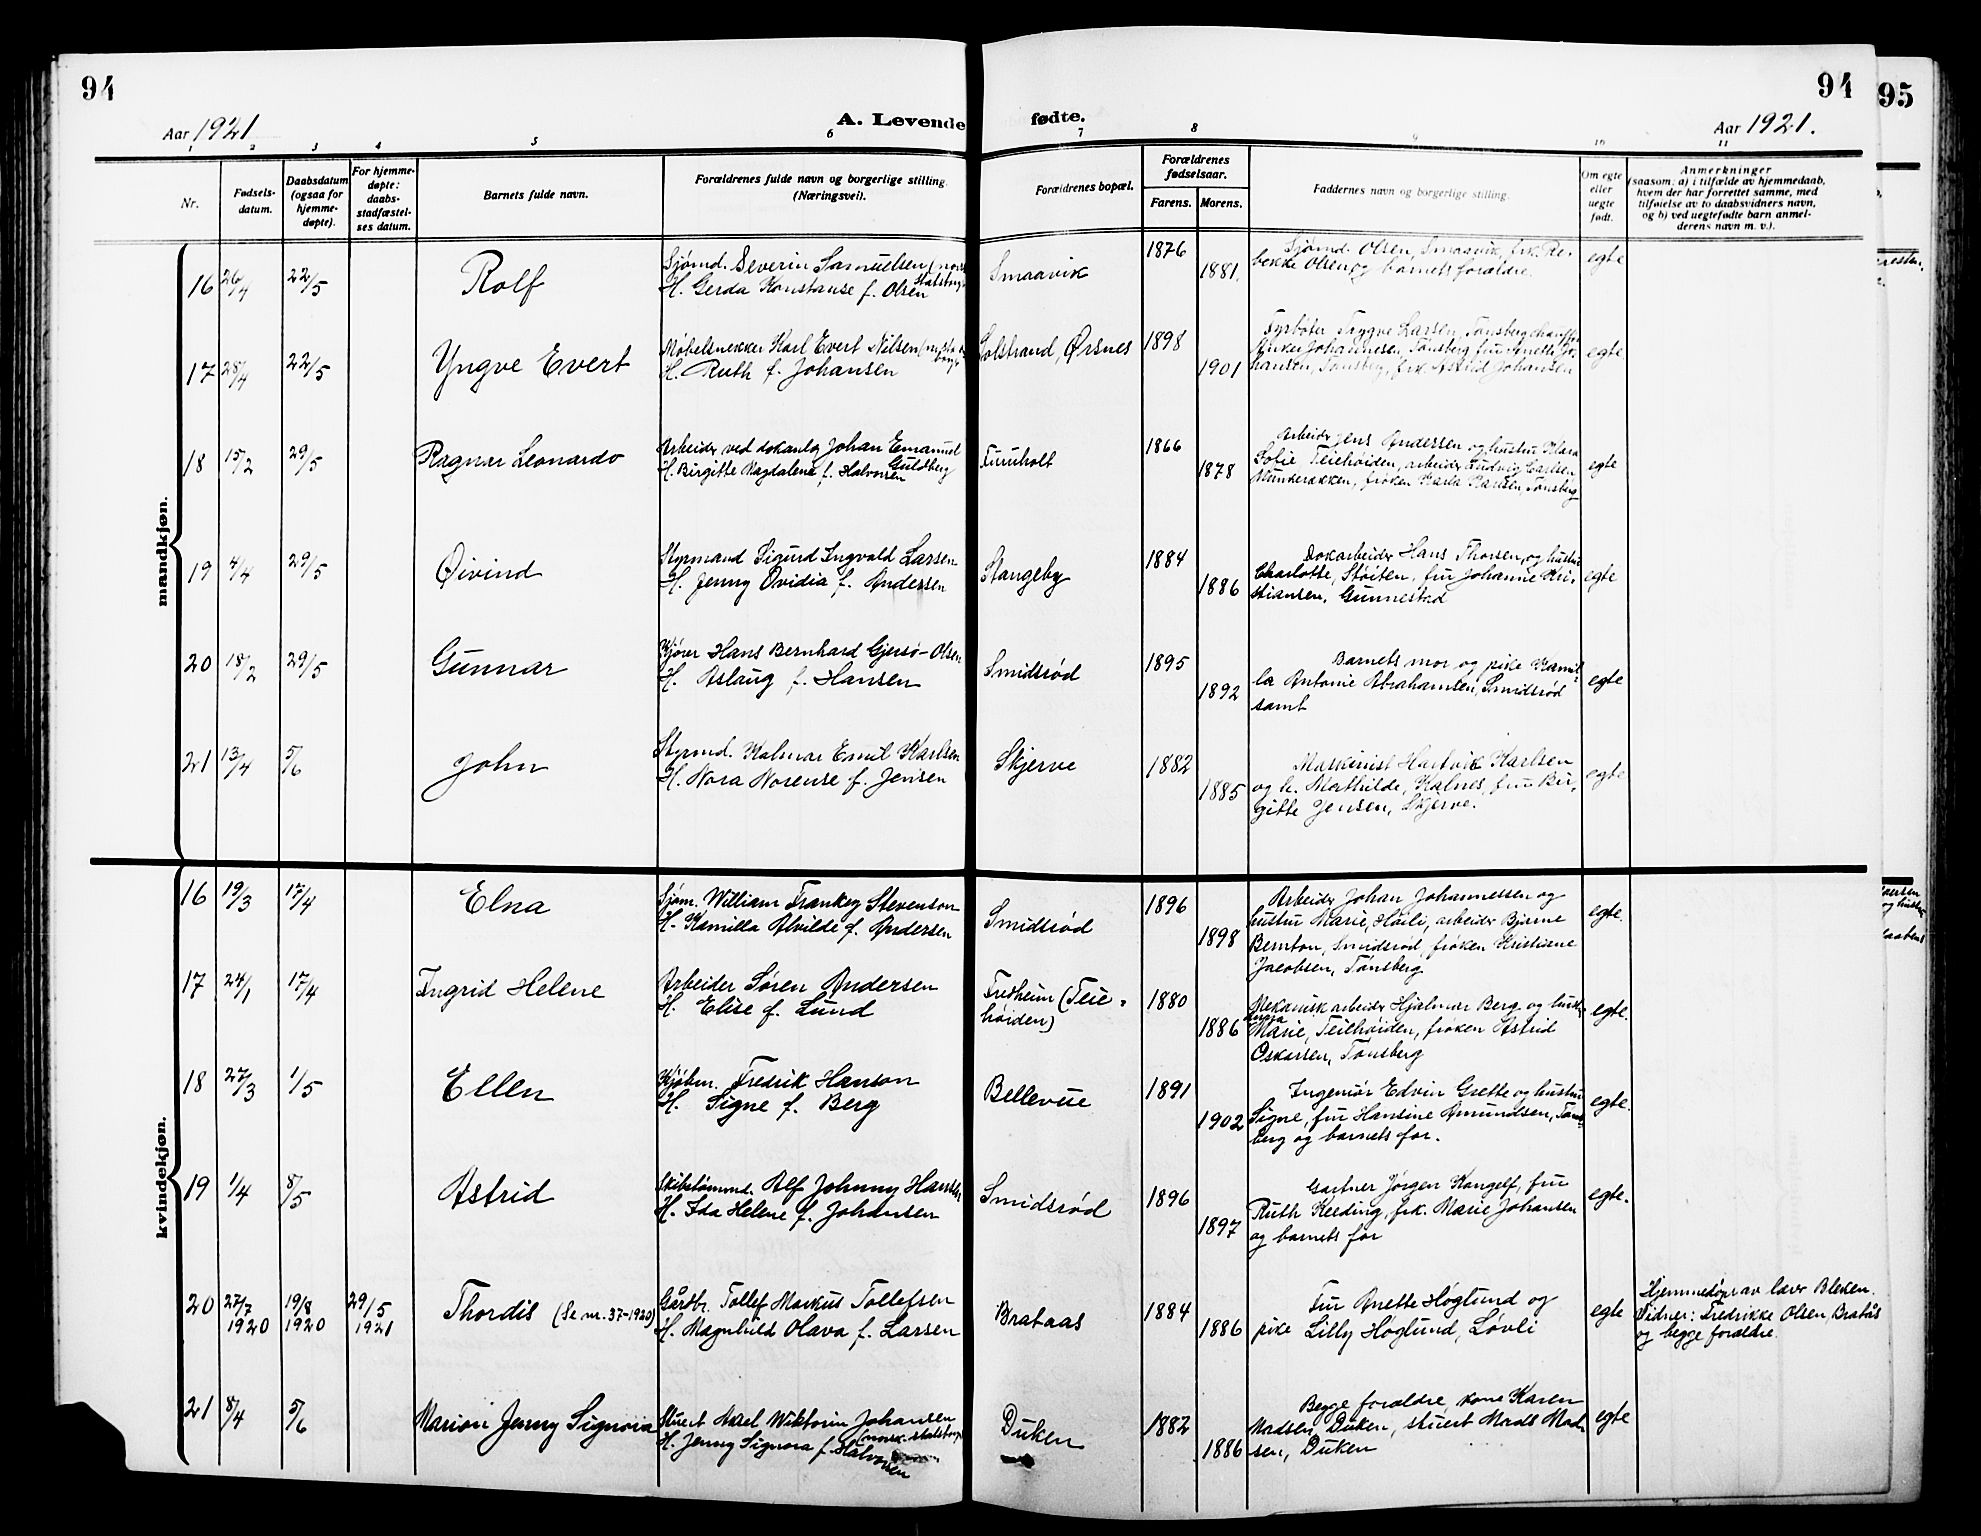 94
94
95
Aar 1921
A. Levende fødte.
Aar 1921.
1 2 3 4 5 6 7 8 9 10 11
Nr.
Fødsels-
datum.
Daabsdatum
(ogsaa for
hjemme-
døpte).
For hjemme-
døpte:
daabs-
stadfæstel-
ses datum.
Barnets fulde navn.
Forældrenes fulde navn og borgerlige stilling.
(Næringsvei).
Forældrenes bopæl.
Forældrenes
fødselsaar.
Farens. Morens.
Faddernes navn og borgerlige stilling.
Om egte
eller
uegte
født.
Anmerkninger
(saasom: a) i tilfælde av hjemmedaab,
hvem der har forrettet samme, med
tilføielse av to daabsvidners navn,
og b) ved uegtefødte barn anmel-
derens navn m. v.).
mandkjøn.
16 26/4 22/5 Rolf
Sjømd. Severin Samuelsen (norsk
statsborg.
H. Gerda Konstanse f. Olsen
Smaavik
1876
1881.
Sjømd. Olsen, Smaavik, frk. Re-
bekke Olsen og barnets forældre.
egte
17 28/4 22/5 Yngve Evert
Møbelsnekker Karl Evert Nilsen
H. Ruth f. Johansen
Solstrand, Ørsnes
1898
1901
Fyrbøter Trygve Larsen, Tønsberg chauffør
Anker Johannesen, Tønsberg fru Anette Jo-
hansen, Tønsberg, frk. Astrid Johansen
egte
18 15/2 29/5 Ragnar Leonardo
Arbeider ved dokanlg Johan Emanuel
Guldberg
H. Birgitte Magdalene f. Halvorsen
Furuholt
1866
1878
Arbeider Jens Andersen og hustru Klara
Sofie Teiehøiden, arbeider Ludvig Carlsen
Munkerækken, frøken Karla Karlsen, Tønsberg
egte
19 4/4 29/5 Øivind
Styrmand Sigurd Ingvald Larsen
H. Jenny Ovidia f. Andersen
Stangeby
1884
1886
Dokarbeider Hans Thorsen, og hustru
Charlotte, Støiten, fru Johanne Kri-
stiansen, Gunnestad
egte
20 18/2 29/5 Gunnar
Kjører Hans Bernhard Gjersø-Olsen
H. Aslaug f. Hansen
Smidsrød
1895
1892
Barnets mor og pike Kamil-
la Antonie Abrahamsen, Smidsrød
samt
egte
21 13/4 5/6 John
Styrmd. Kalmar Emil Karlsen
H. Nora Norense f. Jensen
Skjerve
1882
1885
Maskinist Hartvik Karlsen
og h. Marthilde, Kalnes, fru Bir-
gitte Jensen, Skjerve.
egte
kvindekjøn.
16 19/3 17/4 Elna
Sjøm. William Frankey Stevenson
H. Kamilla Alvilde f. Andersen
Smidsrød
1896
1898
Arbeider Johan Johannessen og
hustru Marie, Høili, arbeider Bjarne
Bernton, Smidsrød, frøken Kristiane
Jacobsen, Tønsberg
egte.
17 24/1 17/4 Ingrid Helene
Arbeider Søren Andersen
H. Elise f. Lund
Fredheim (Teie-
høiden)
1880
1886
Mekanisk arbeider Hjalmar Berg og hustru
Marie, Teiehøiden, frøken Astrid
Oskarsen, Tønsberg
egte.
18 27/3 1/5 Ellen
Kjøbm. Fredrik Hanson
H. Signe f. Berg
Bellevue
1891
1902
Ingeniør Edvin Grette og hustru
Signe, fru Hansine Amundsen, Tøns-
berg og barnets far.
egte.
19 1/4 8/5 Astrid
Skibstømmd. Alf Johnny Hansen
H. Ida Helene f. Johansen
Smidsrød
1896
1897
Gartner Jørgen Kangelf, fru
Ruth Keeding, frk. Marie Johansen
og barnets far
egte.
20 27/7 1920 19/8 1920 29/5 1921 Thordis (Se nr. 37-1920)
Gårdbr. Tollef Markus Tollefsen
H. Magnhild Olava f. Larsen
Brataas
1884
1886
Fru Anette Høglund og
pike Lilly Høglund, Løvli
egte
Hjemmedøpt av lærer Bleken.
Vidner: Fredrikke Olsen, Bratås
og begge forældre.
21 8/4 5/6 Marion Jenny Signora
Stuert Axel Wiktorin Johansen
(norsk statsborg.
H. Jenny Signora f. Halvorsen
Duken
1882
1886
Begge forældre, kone Karen
Madsen, Duken, stuert Mads Mad-
sen, Duken
egte